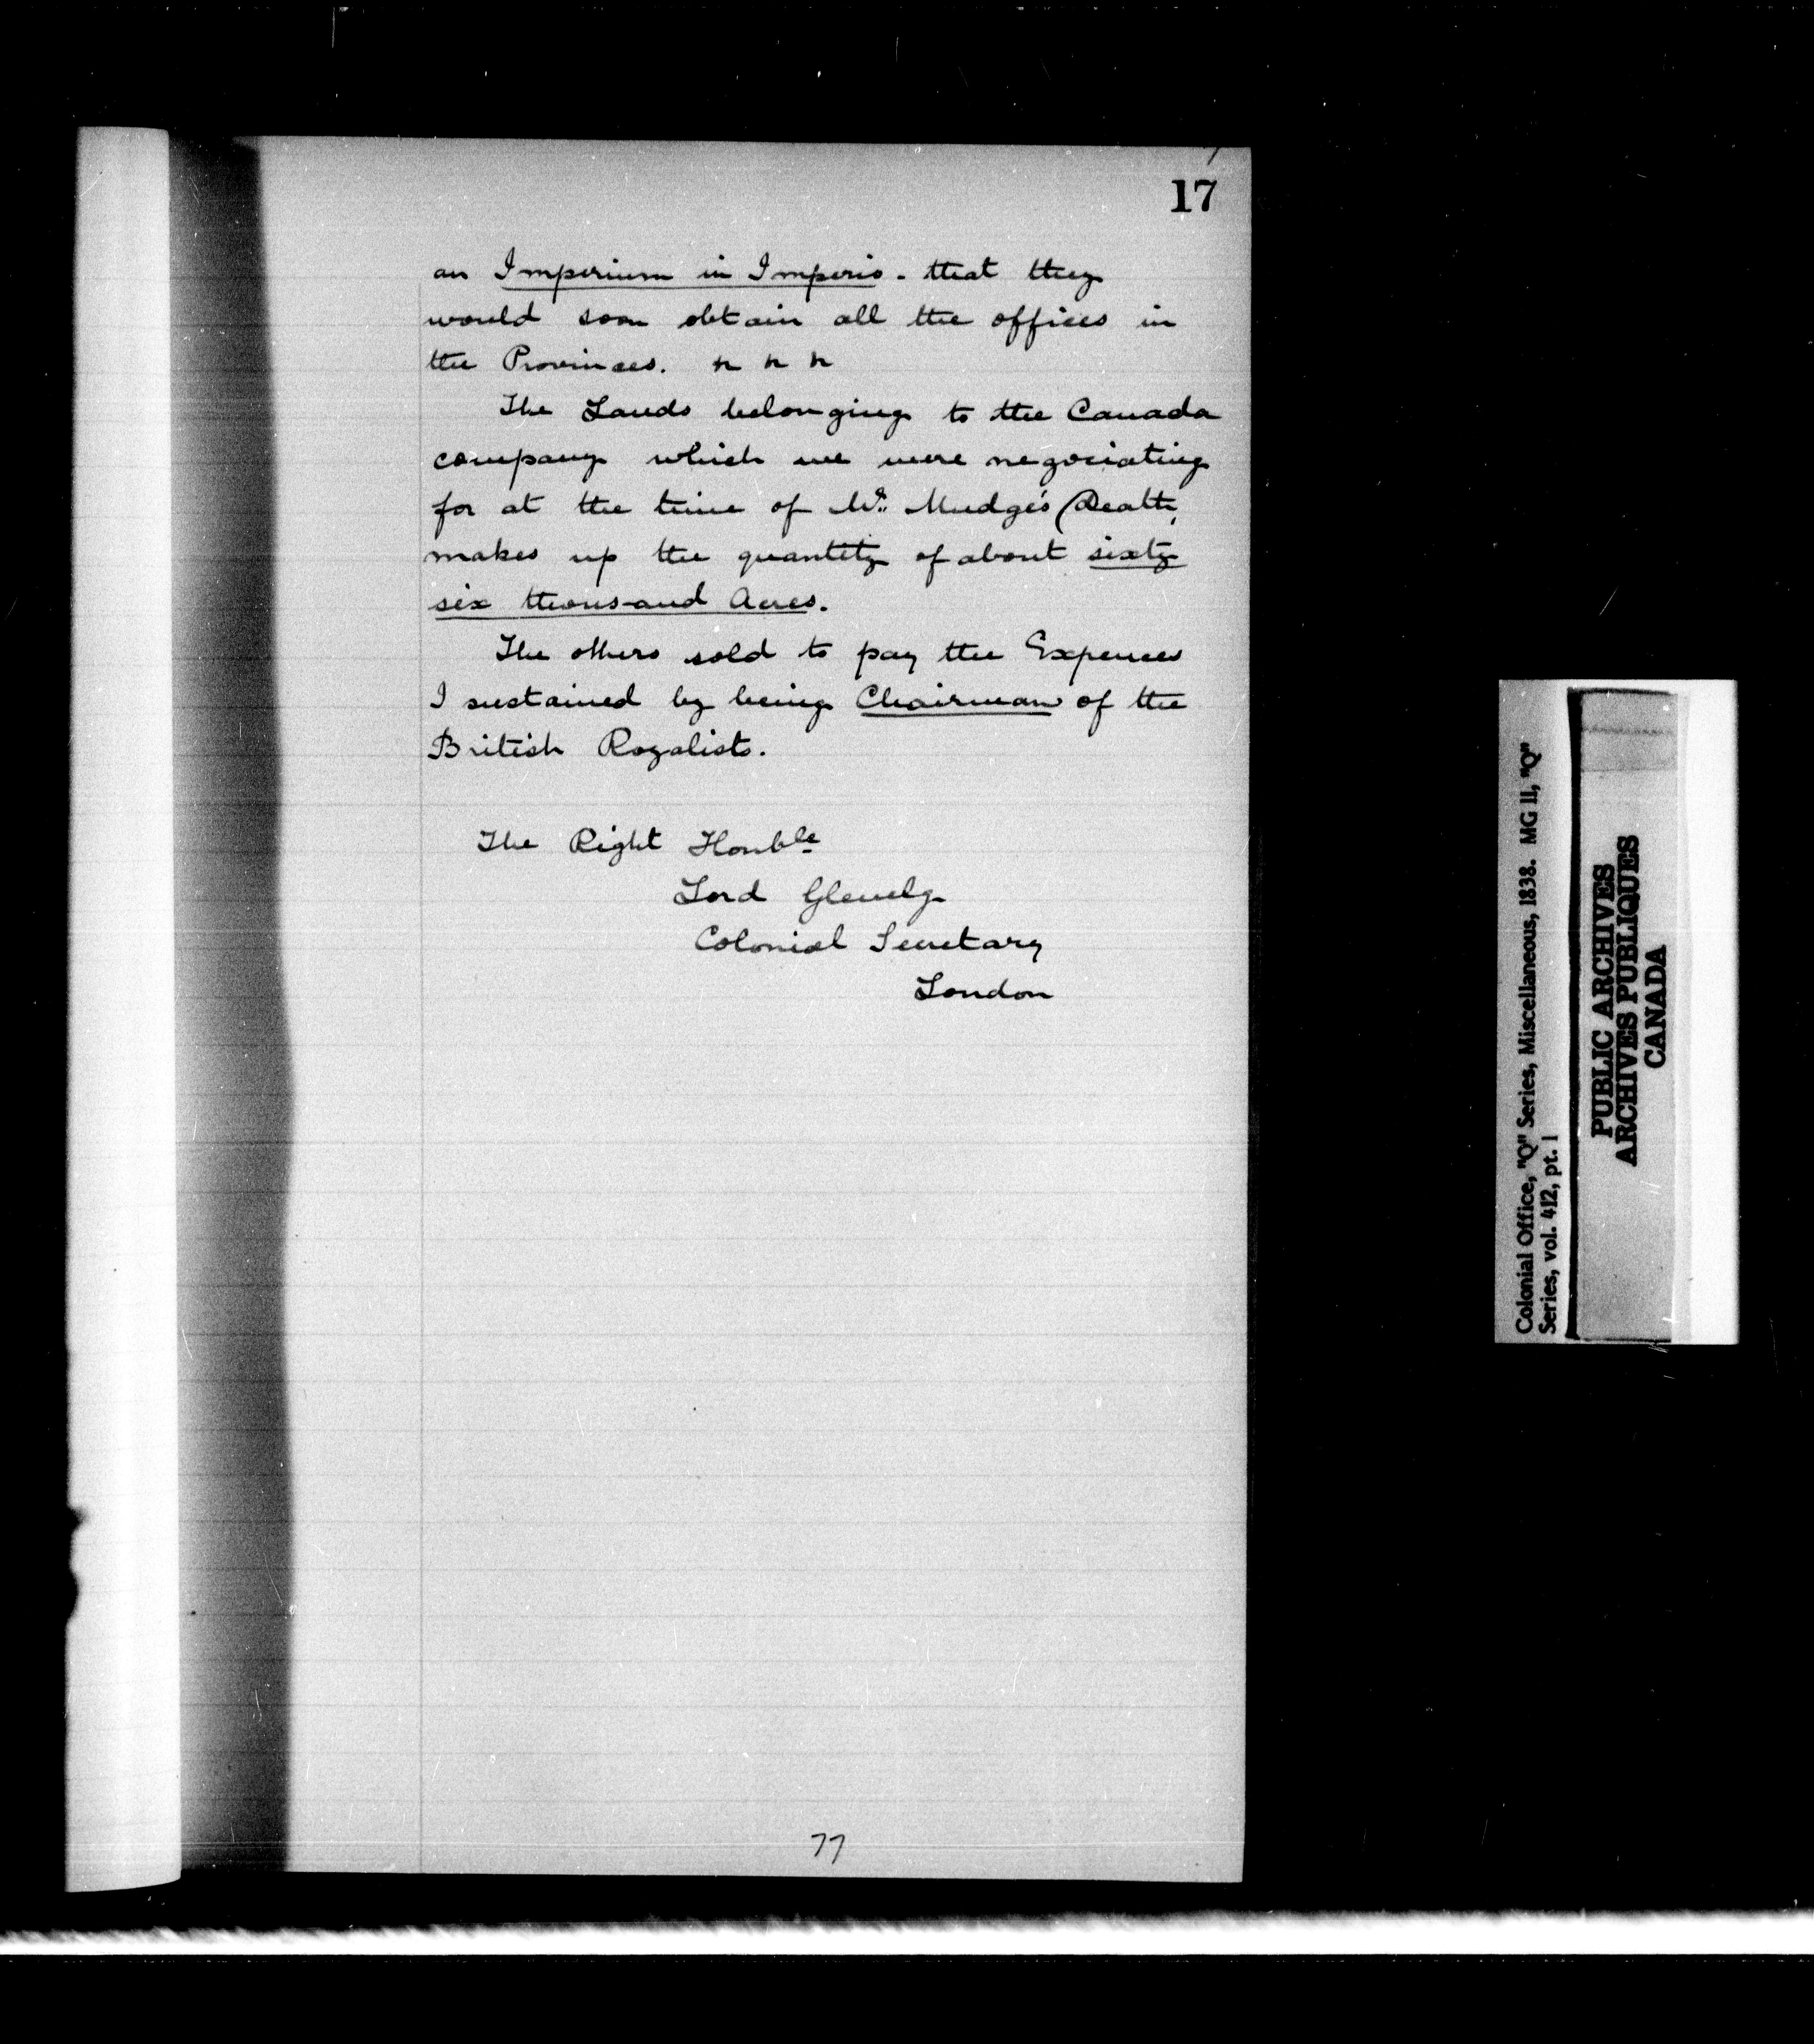 17
an Imperium in Imperio - that they
would soon obtain all the offices in
the Provinces. x x x
The Lands belonging to the Canada
company which we were negociating
for at the time of Mr. Mudge's Death,
makes up the quantity of about sixty
six thousand Acres.
The others sold to pay the Expences
I sustained by being Chairman of the
British Royalists.
The Right Honble
Lord Glenelg
Colonial Secretary
London
77
Colonial Office, "Q" Series, Miscellaneous, 1838. MG 11, "Q"
Series, vol. 412, pt. 1
PUBLIC ARCHIVES
ARCHIVES PUBLIQUES
CANADA